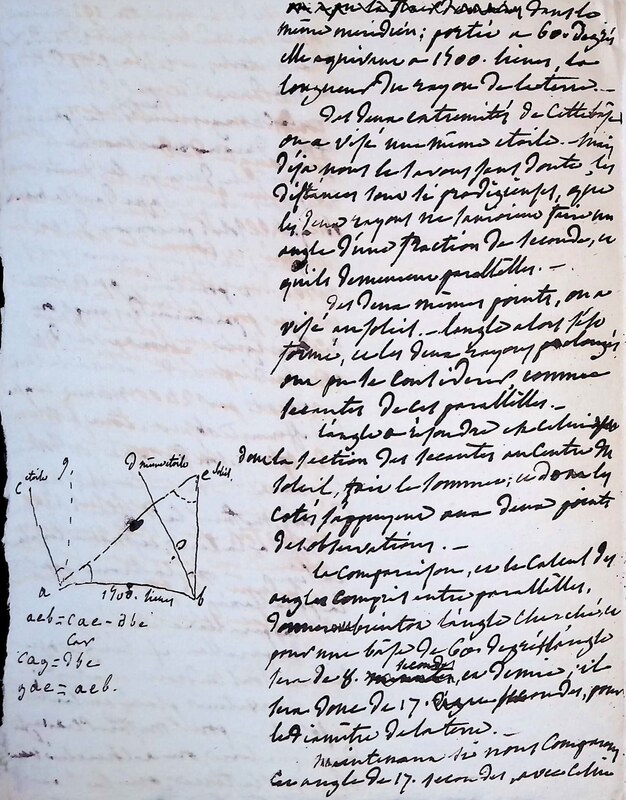 dans le
même méridien; portée a 60. degrés
elle equivaut a 1500. lieues, la
longueur du rayon de la terre. —
des deux extremités de cette base
on a visé une même etoile. — mais
déja nous le savons sans doute, les
distances sont si prodigieuses, que
les deux rayons ne sauroient faire un
angle d'une fraction de seconde, et
qu'ils demeurent paralleles. —
des deux mêmes points, on a
visé au soleil. — l'angle alors s'est
formé, et les deux rayons prolongés
ont pu se considerer comme
secantes de ces paralleles. —
l'angle a résoudre est celui
dont la section des secantes au centre du
soleil, fait le sommet; et dont les
cotés s'appuyent aux deux points
des observations. —
la comparaison, et le calcul des
angles compris entre paralleles,
donnent l'angle cherché, et
pour une base de 60. degrés l'angle
sera de 8. secondes, et demie; il
sera donc de 17. secondes, pour
le diamètre de la terre. —
maintenant si nous comparons
cet angle de 17. secondes, avec celui
c etoile
g.
d même etoile
e soleil.
a
1500. lieues
b
aeb = cae - dbe
car
cag = dbe
gae = aeb.